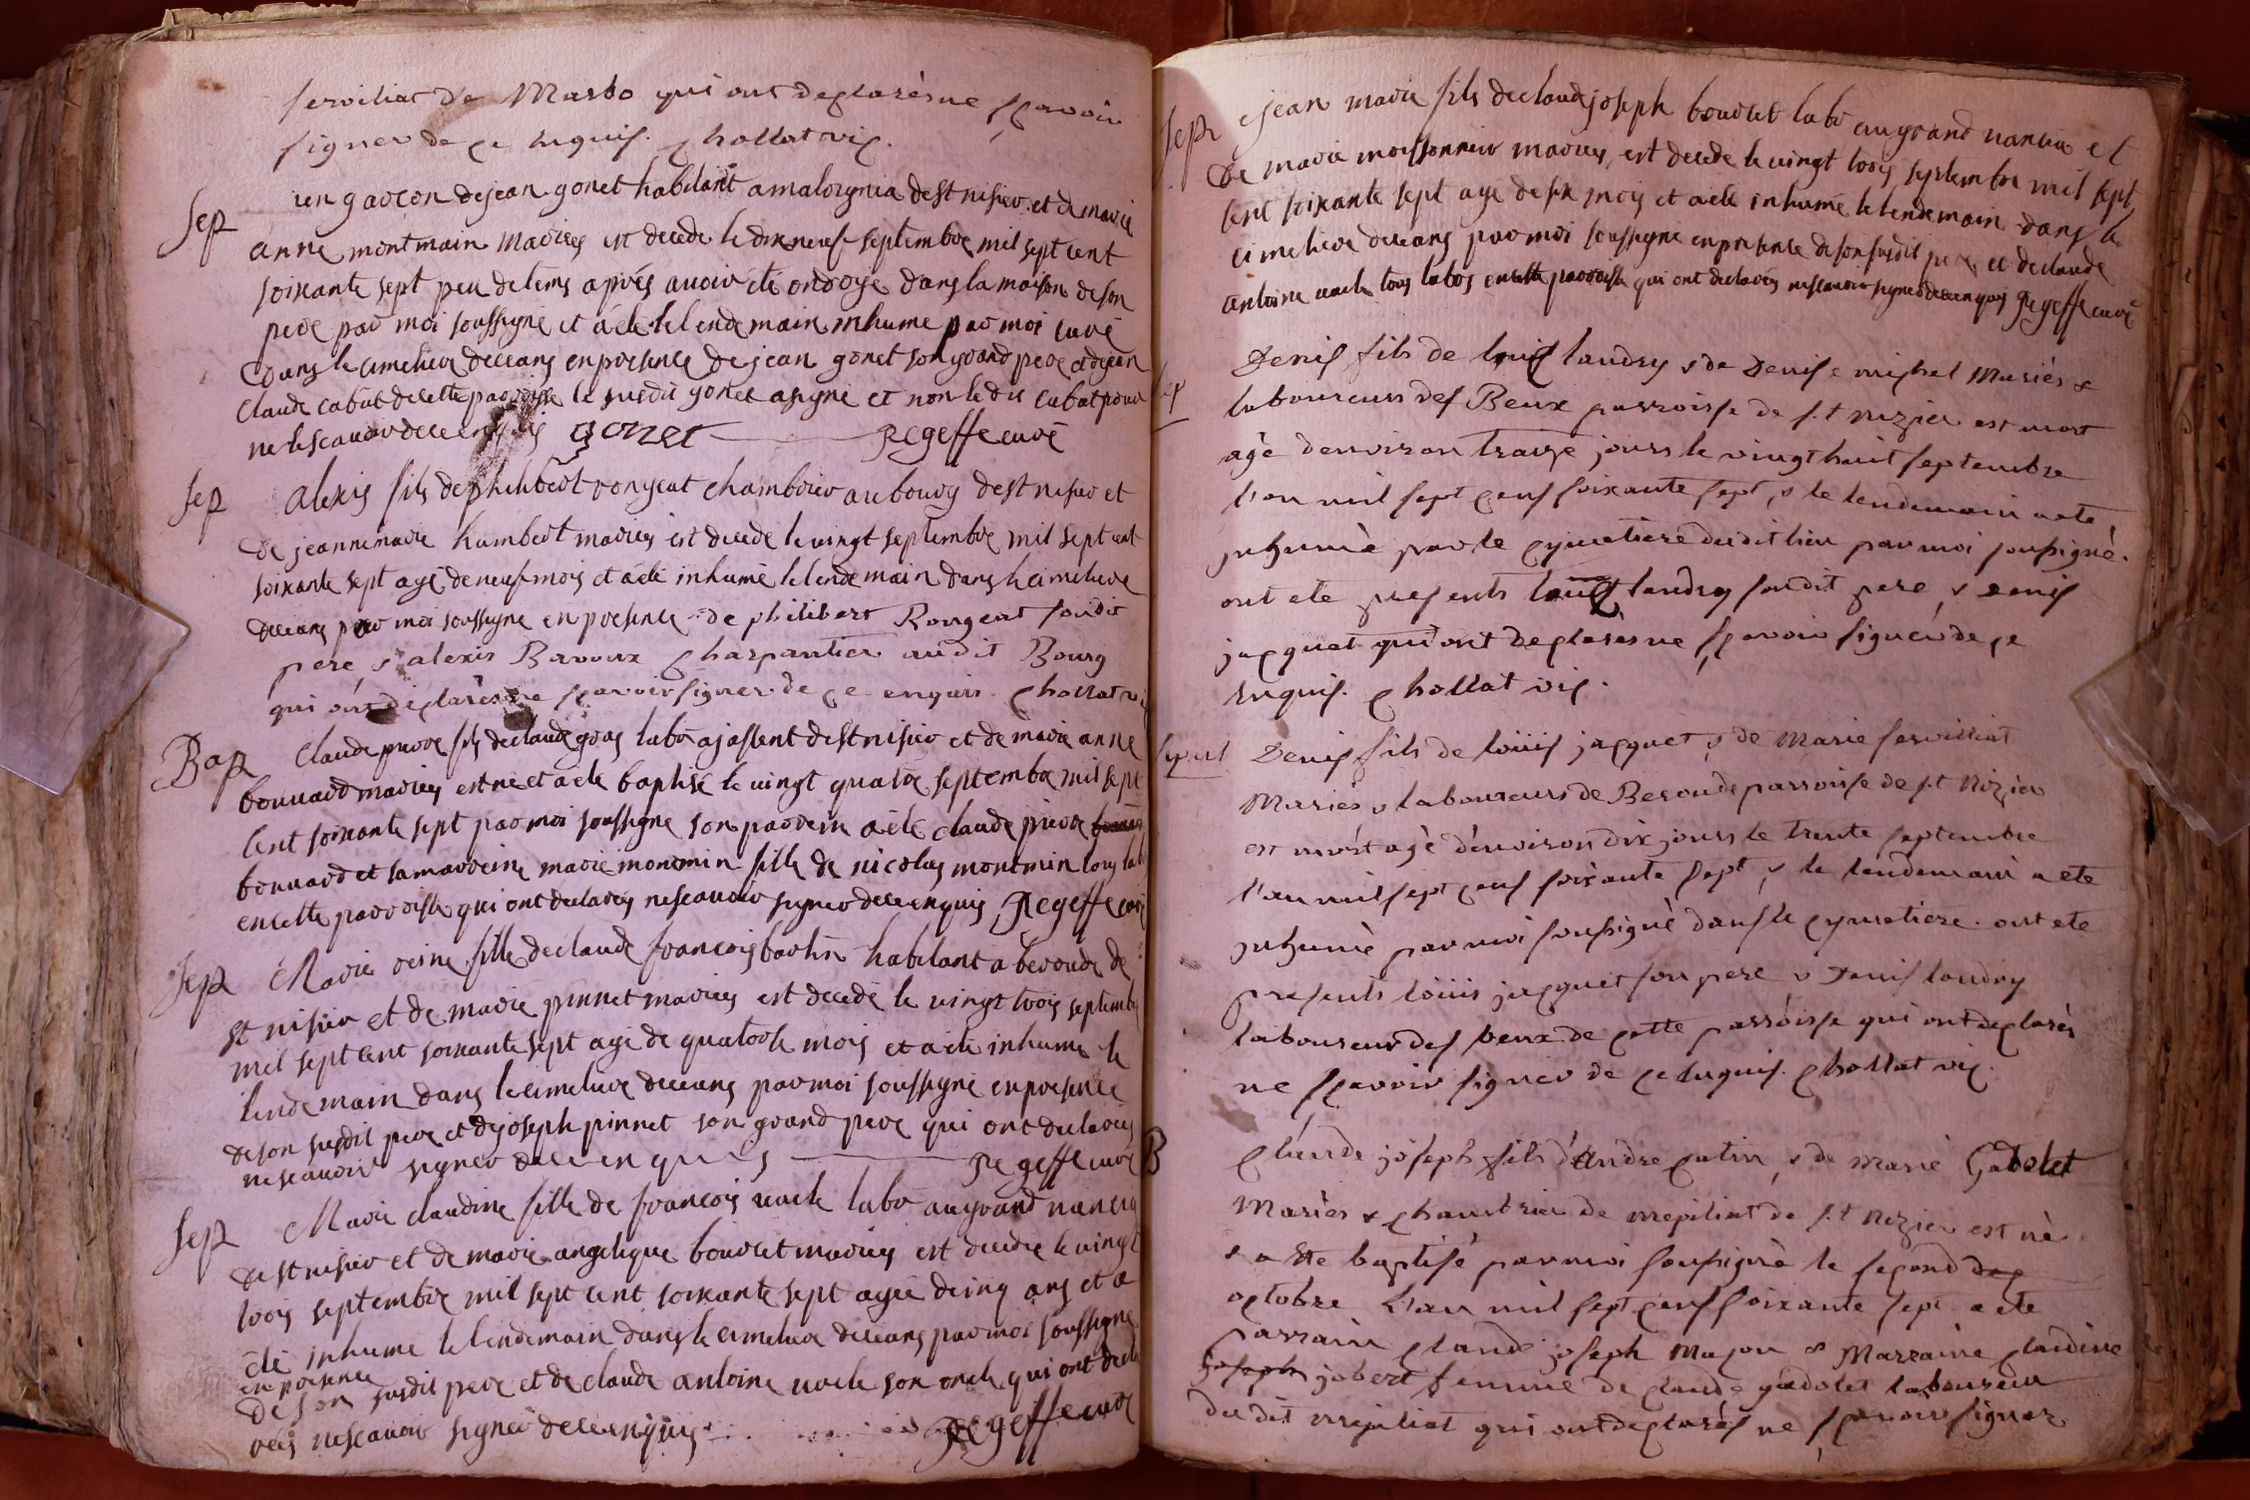 serviliat de Marbo qui ont declarés ne sçavoir
signer de ce enquis. chollat vic.
Sep
un garçon de jean gonet habitant a de st nisier et de marie
anne montmain mariés est decede le dix neuf septembre mil sept cent
soixante sept peu de tems aprés avoir été ondoyé dans la maison de son
pere par moi soussigné et a été le lendemain inhumé par moi curé
dans le cimetiere de ceans en presence de jean gonet son grand pere et de jean
claude cabut de cette parroisse le susdit gonet a signé et non le dit cabut pour
ne le scavoir de ce enquis gonet Regeffe curé
Sep
alexis fils de philibert rongeat chambrier au bourg de st nisier et
de jeanne marie humbert mariés est decede le vingt septembre mil sept cent
soixante sept agé de neuf mois et a été inhumé le lendemain dans le cimetiere
de ceans par moi soussigné en presence de philibert Rongeat son dit
pere, & alexis Bavoux charpantier au dit Bourg
qui ont déclarés ne sçavoir signer de ce enquis chollat vic
Bap
Claude pierre fils de claude gras labr a jassent de st nisier et de marie anne
bouvard mariés est né et a été baptisé le vingt quatre septembre mil sept
cent soixante sept par moi soussigné son parrein a été claude pierre
bouvard et sa marreine marie monmin fille de nicolas montmin tous lab
en cette parroisse qui ont declarés ne scavoir signer de ce enquis Regeffe curé
Sep
Marie reine fille de claude françois bertin habitant a beronde de
st nisier et de marie pinnet mariés est decedé le vingt trois septembre
mil sept cent soixante sept agé de quatorze mois et a été inhumé le
lendemain dans le cimetiere de ceans par moi soussigné en presence
de son susdit pere et de joseph pinnet son grand pere qui ont declarés
ne scavoir signer de ce enquis Regeffe curé
Sep
Marie claudine fille de françois uacle labr au grand nancin
de st nisier et de marie angelique bouvret mariés est decedée le vingt
trois septembre mil sept cent soixante sept agée de cinq ans et a
été inhumé le lendemain dans le cimetiere de ceans par moi soussigné
en presence
de son susdit pere et de claude antoine uacle son oncle qui ont decla
rés ne scavoir signer de ce enquis Regeffe curé
Sep
jean marie fils de claude joseph bouvret labr au grand nancin et
de marie moissonnier mariés, est decede le vingt trois septembre mil sept
cent soixante sept agé de six mois et a été inhumé le lendemain dans le
cimetiere de ceans par moi soussigné en presence de son susdit pere et de claude
antoine uacle tous labrs en cette parroisse qui ont declarés ne scavoir signer de ce enquis Regeffe curé
Sep
Denis fils de louis landry & de Denise michel Mariés &
laboureurs des Beux parroisse de s.t nizier est mort
agé d'environ traize jours le vingt huit septembre
l'an mil sept cens soixante sept, & le lendemain a ete
inhumé par le cymetiere dudit lieu par moi soussigné.
ont ete presents louis landry son dit pere, & Denis
jacquet qui ont declarés ne sçavoir signer de ce
enquis. chollat vic.
sepul
Denis fils de loüis jacquet & de Marie serviliat
Mariés & laboureurs de Beronde parroisse de s.t Nizier
est mort agé d'environ dix jours le trente septembre
l'an mil sept cens soixante sept, & le lendemain a ete
inhumé par moi soussigné dans le cymetiere. ont ete
presents loüis jacquet son pere & Denis landry
laboureur des beux de cette parroisse qui ont declarés
ne sçavoir signer de ce enquis. chollat vic.
B
Claude joseph fils d'Andre catin & de Marie Gadolet
Mariés & de de s.t Nizier est né
& a ete baptisé par moi soussigné le second
octobre L'an mil sept cens soixante sept a ete
parrain claude joseph Majon & Marraine claudine
joseph jobert femme de claude gadolet laboureur
du dit qui ont declarés ne sçavoir signer